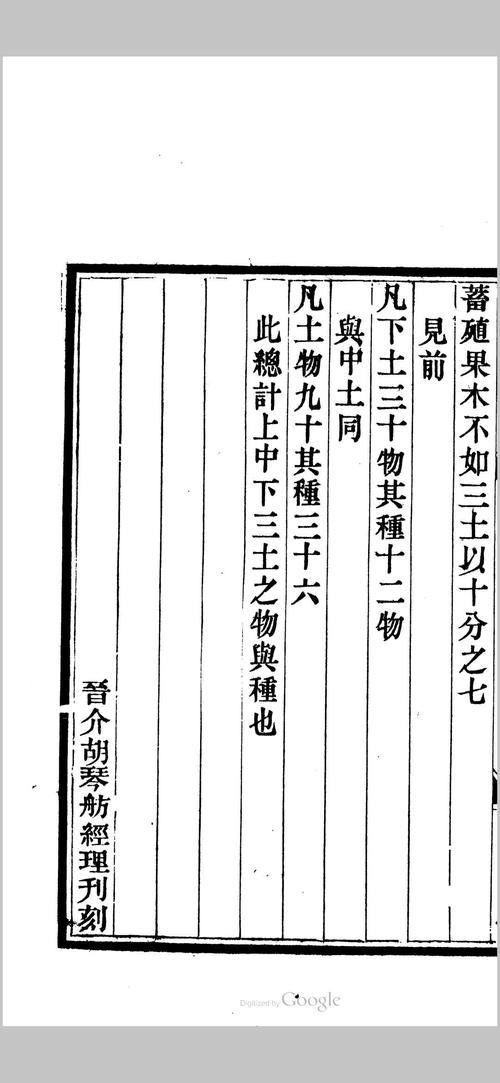 蓄殖果木不如三土以十分之七
見前
凡下土三十物其種十二物
與中土同
凡土物九十其種三十六
此總計上中下三土之物與種也
晉介胡琴舫經理刊刻
Digitized by Google